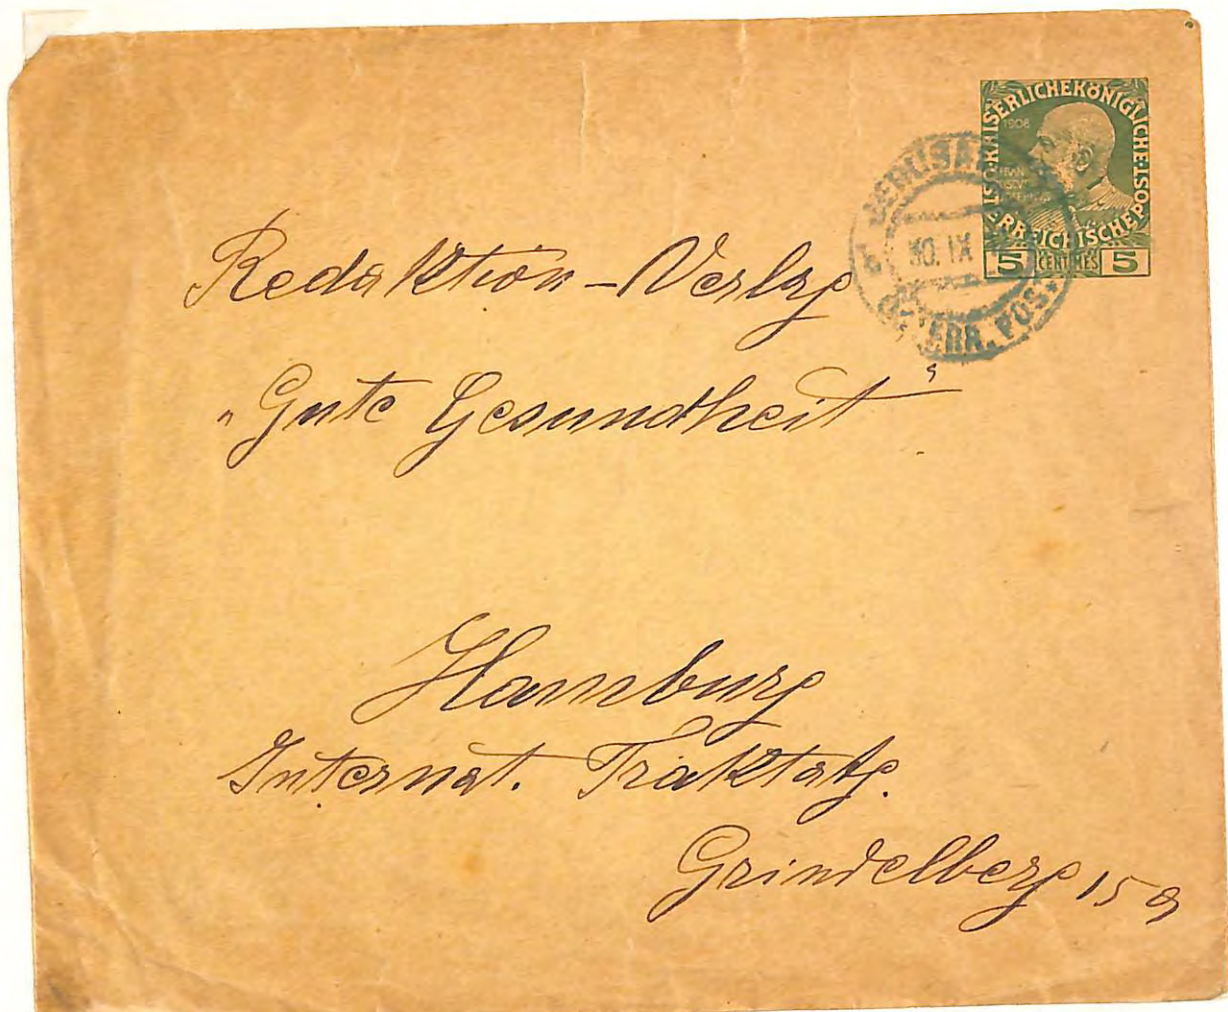 KAISERLICHE KÖNIGLICHE ÖSTERREICHISCHE POST
1908
5 CENTIMES 5
30. IX
Redaktion-Verlag
„Gute Gesundheit"
Hamburg
Internat. Traktatg.
Grindelberg 15a